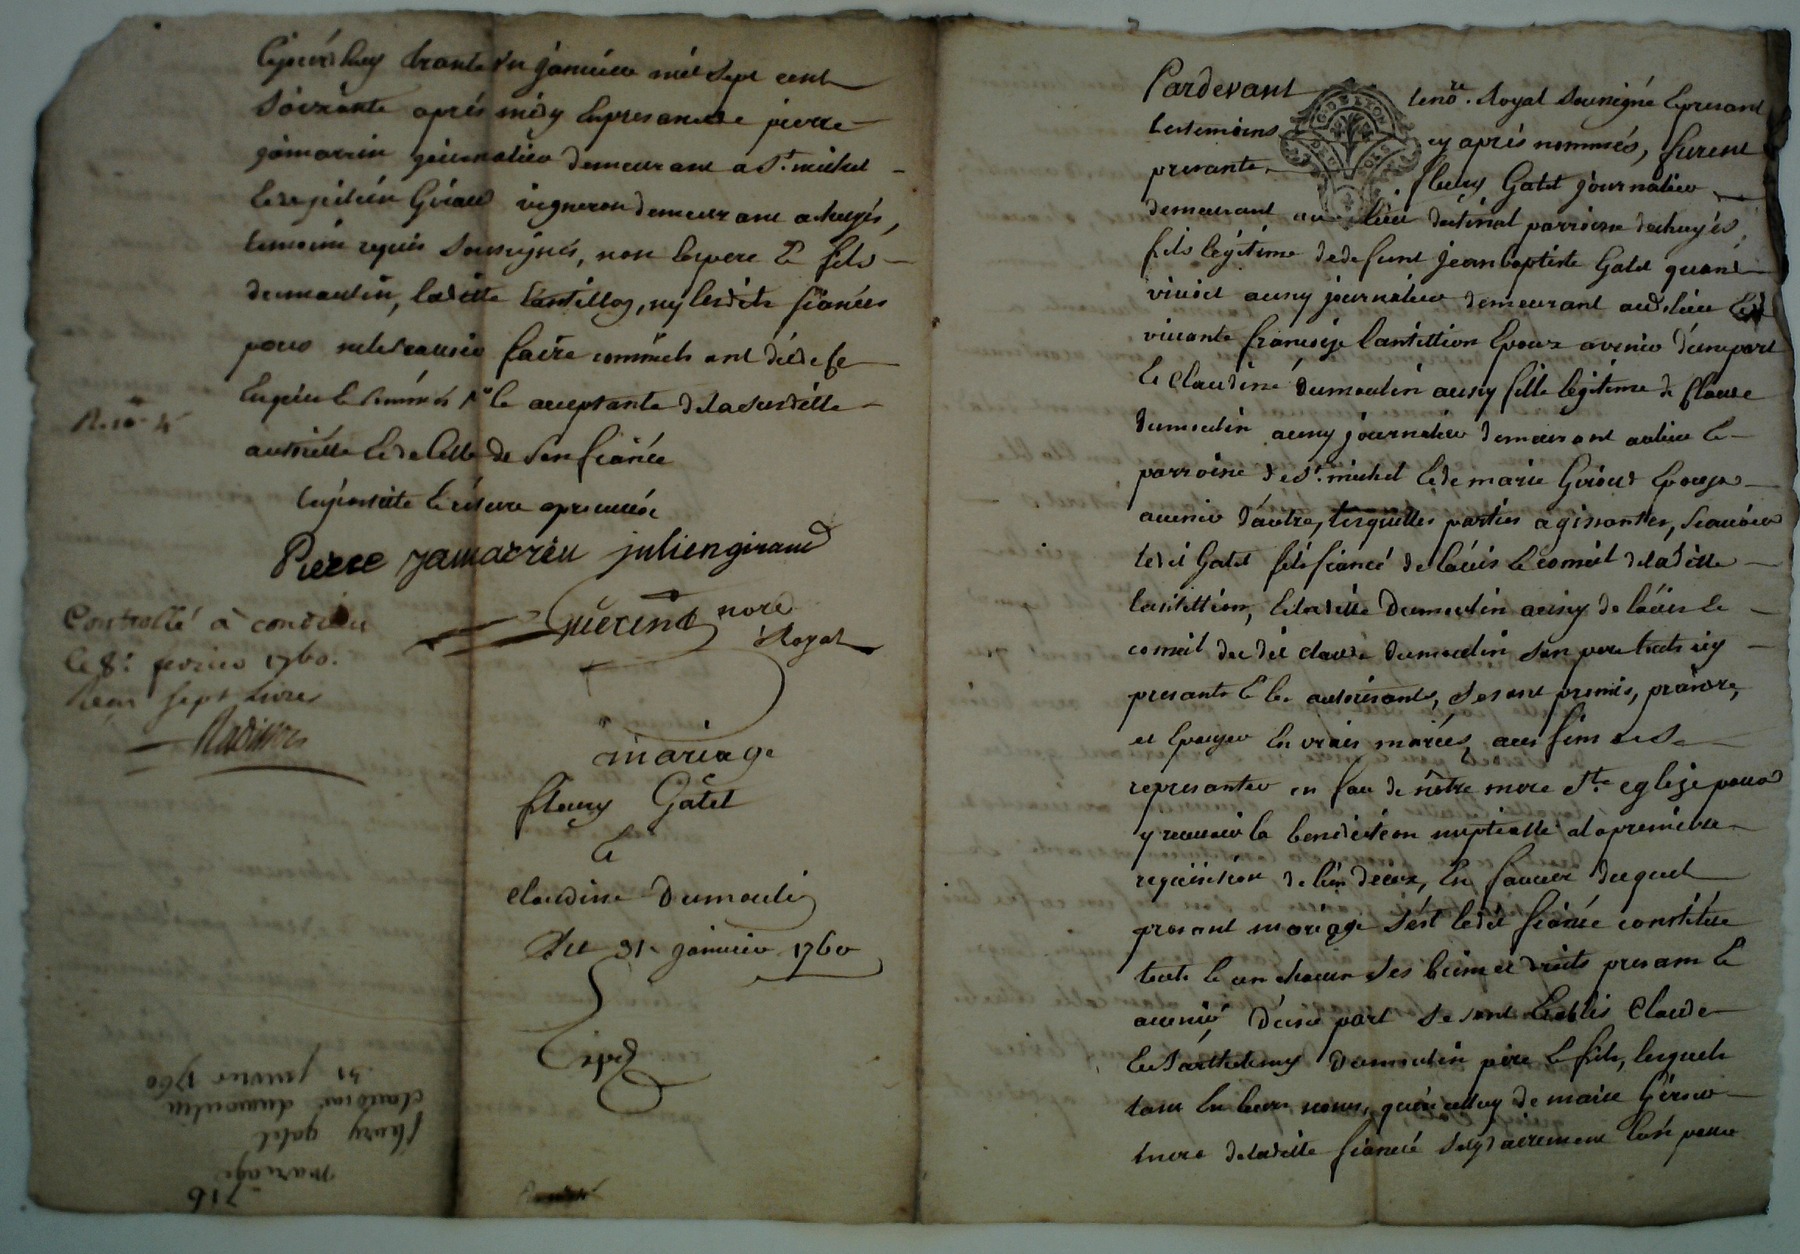 cejourd'huy trante un janvier mil sept cent
soixante après midy en presance de pierre
jamarrin journalier demeurant a St. michel
et de julien Giraud vigneron demeurant a chuyés,
temoins requis soussignés, non les pere & fils
dumoulin, ladite lantillon, ny lesdits fiancés
pour ne le scavoir faire comme ils ont dit de ce
enquis et sommés & le acceptante de la susditte
authorité et de celle de son fiancé
Pierre jamarrin juliengiraud
Guerin nore
Royal
Controllé à condrieu
le 8e. fevrier 1760.
Reçu sept livres
mariage
fleury Gatet
Et
claudine Dumoulin
Du 31e janvier 1760
Exped
716
mariage
fleury gatet
claudine dumoulin
31 janvier 1760
Pardevant le nore. Royal soussigné & presant
les temoins cy après nommés, furent
presants fleury Gatet journalier
demeurant au lieu parroisse de chuyés,
fils legitime de defunt jean baptiste Gatet quand
vivoit aussy journalier demeurant audt lieu Et de
vivante françoise lantillion Epoux avenir d'une part
Et Claudine dumoulin aussy fille legitime de Claude
dumoulin aussy journalier demeurant au lieu Et
parroisse de St. michel Et de marie Giroud Epouse
avenir d'autre, lesquelles parties agissantes, scavoir
ledit Gatet fils fiancé de l'avis Et conseil de ladite
lantillion, Et ladite Dumoulin aussy de l'avis Et
conseil du dit claude dumoulin son pere touts icy
presants Et les authorisants, se sont promis, prandre,
et Epouser en vrais mariés, aux fins de se
representer en face de nôtre mere Ste eglise pour
y recevoir la benediction nuptialle a la premiere
requisition de l'un d'eux, En faveur duquel
presant mariage s'est ledit fiancé constitué
touts Et un chacun ses biens et droits presants Et
avenir d'une part se sont Establis Claude
Et Barthelemy dumoulin père Et fils, lesquels
tant En leurs noms, qu'en celluy de marie Girou
mere de ladite fiancée solydairement l'un pour